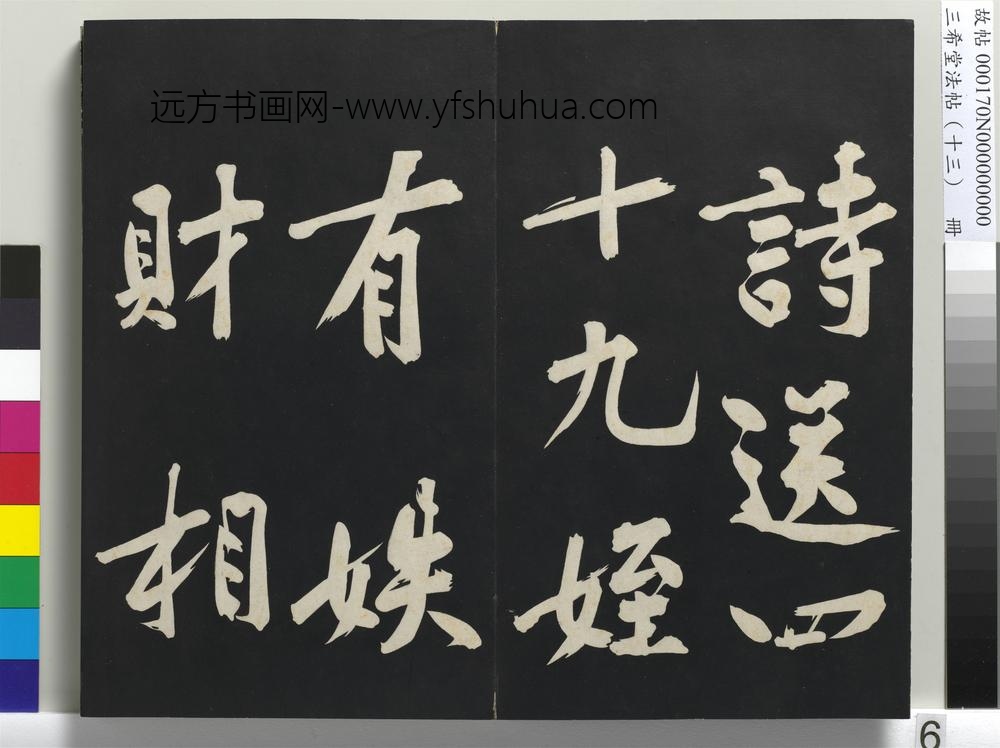 詩送四
十九姪
有妷
財相
远方书画网-www.yfshuhua.com
故帖 000170N000000000
三希堂法帖(十三) 冊
6